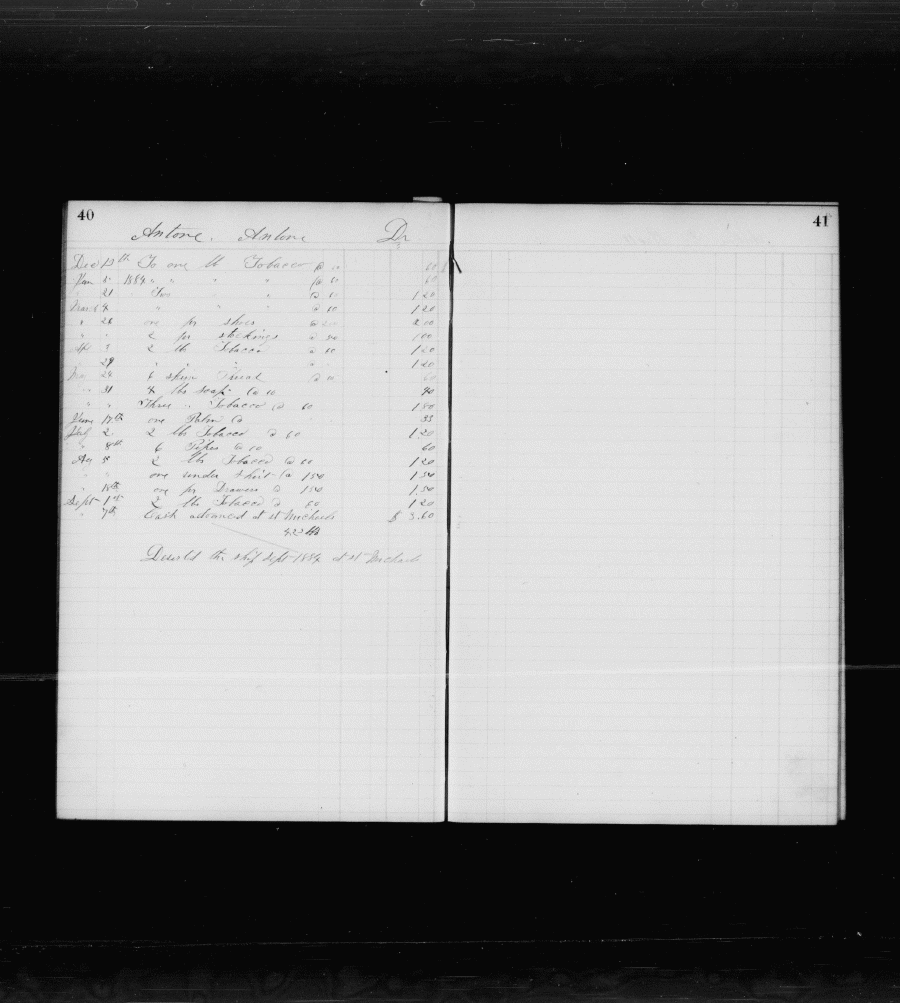 40
Antone. Antone Dr
Dec 13th To one lb Tobacco @ 60 60
1884 " " " " @ 60 60
" 21 Two " " " @ 60 1 20
March 4 " " " @ 60 1 20
" 26 one pr shoes @ 2 00
" " 2 pr stockings @ 50 1 00
2 lb Tobacco @ 60 1 20
29 " " " " 1 20
24 6 skein Thread @ 10 60
" 31 4 lbs soap @ 10 40
" " Three " Tobacco @ 60 1 80
June 17th one Palm @ 35
July 2 2 lbs Tobacco @ 60 1 20
" 8th 6 Pipes @ 10 60
Aug 5 2 lbs Tobacco @ 60 1 20
" " one under shirt @ 1 50 1 50
" 18th one pr Drawers @ 1 50 1 50
Sept 1st 2 lbs Tobacco @ 60 1 20
" 7th Cash advanced at St Michaels $ 3.60
the ship Sept 1884 at St Michaels
41